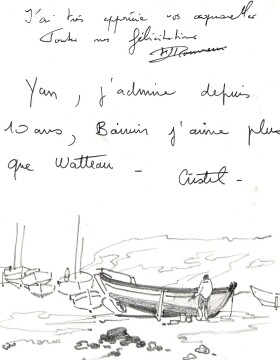 J'ai très apprécié vos aquarelles
Toutes nos félicitations
Yan, j'admire depuis
10 ans, j'aime plus
que Watteau -
Cristel -